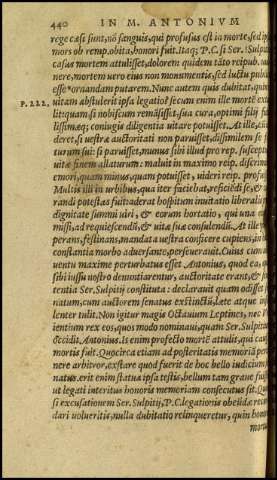 440 IN M. ANTONIVM
rege cæsi sunt, nō sanguis, qui profusus est in morte, sed ip
mors ob remp. obita, honori fuit. Itaq; P.C. si Ser. Sulpic
casus mortem attulisset, dolorem quidem tāto reipub. uul
nere, mortem uero eius non monumentis, sed luctu public
esse * ornandam putarem. Nunc autem quis dubitat, quin
P. 222. uitam abstulerit ipsa legatio? secum enim ille mortē extu
lit: quam si nobiscum remāsisset, sua cura, optimi filij fi
lissimæq; coniugis diligentia uitare potuisset. At ille, cū
deret, si uestræ auctoritati non paruisset, dissimilem se f
turum sui: si paruisset, munus sibi illud pro rep. suscept
uitæ finem allaturum: maluit in maximo reip. discrim
emori, quàm minus, quàm potuisset, uideri reip. profuis
Multis illi in urbibus, qua iter faciebat, reficiēdi se, & c
randi potestas fuit: aderat hospitum inuitatio liberalis
dignitate summi uiri, & eorum hortatio, qui una era
missi, ad requiescendū, & uitæ suæ consulendū. At ille p
perans, festinans, mandata uestra conficere cupiens, in h
constantia morbo aduersante, perseuerauit. Cuius cum a
uentu maxime perturbatus esset Antonius, quod ea, q
sibi iussu uestro denuntiarentur, auctoritate erant, & se
tentia Ser. Sulpitij constituta: declarauit quàm odisset s
natum, cum auctorem senatus exstinctū, læte atque in
lenter tulit. Non igitur magis Octauium Leptines, nec V
ientium rex eos, quos modo nominaui, quàm Ser. Sulpitiū
occidit Antonius. Is enim profecto mortē attulit, qui cau
mortis fuit. Quocirca etiam ad posteritatis memoriā pe
nere arbitror, exstare quod fuerit de hoc bello iudicium
natus. erit enim statua ipsa testis, bellum tam graue fuis
ut legati interitus honoris memoriam consecutus sit. Quò
si excusationem Ser. Sulpitij, P.C. legationis obeūdæ recor
dari uolueritis, nulla dubitatio relinqueretur, quin honor
mortui